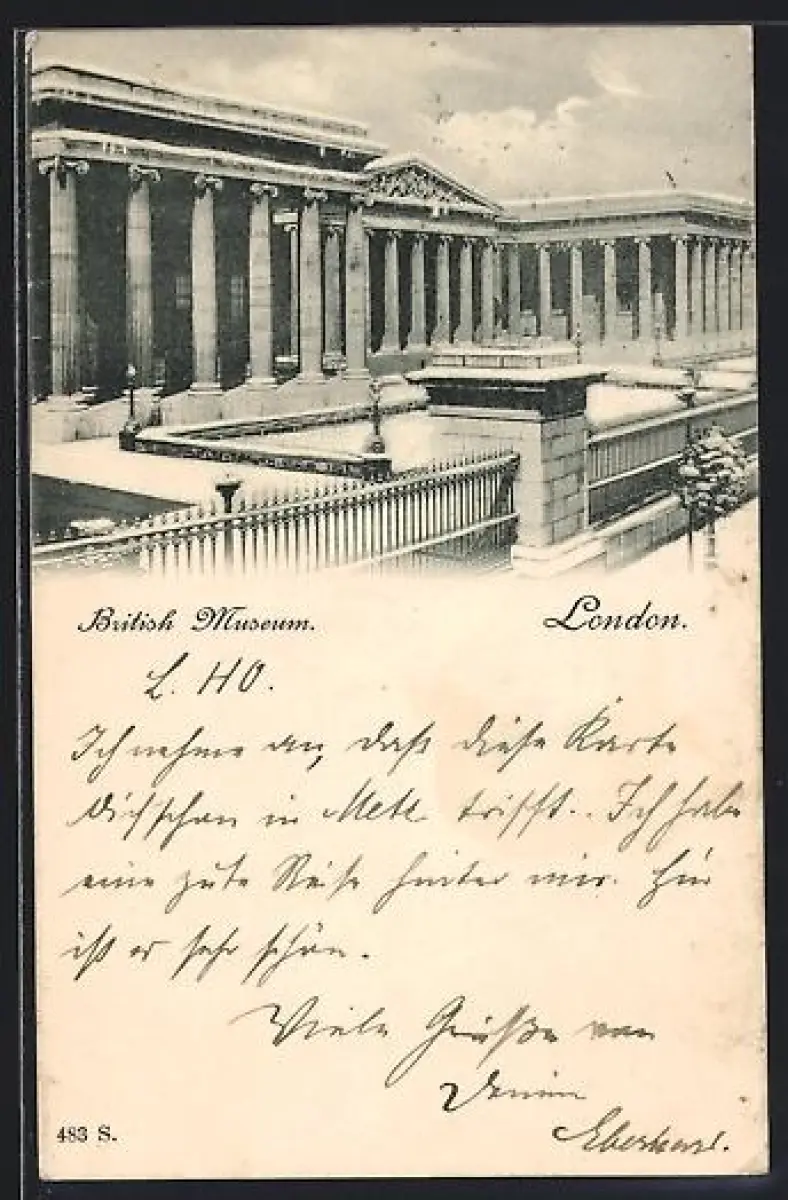 British Museum. London.
L. HO.
Ich nehme an, daß diese Karte
Dich schon in Metz trifft. Ich habe
eine gute Reise hinter mir. Hier
ist es sehr schön.
Viele Grüße von
Deinem
Eberhard.
483 S.